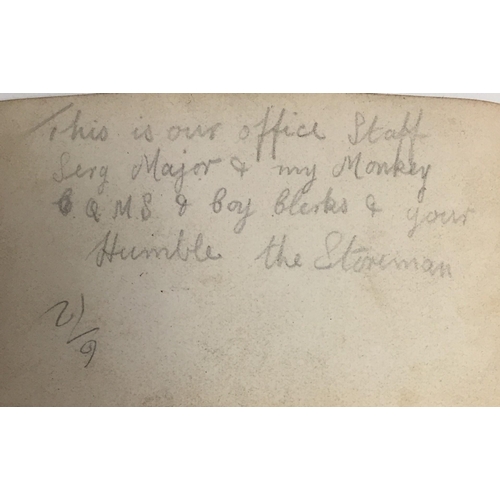 This is our office Staff
Serg Major & my Monkey
C.Q.M.S & Coy Clerks & your
Humble the Storeman
2/9